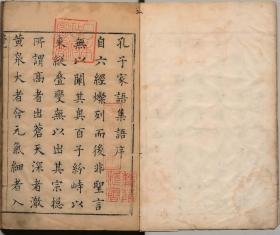 孔子家語集語序
自六經燦列而後非聖言
無以闡其奥百子紛峙以
來縱疊變無以出其宗揔
所謂高者出蒼天深者激
黄泉大者含元氣細者入